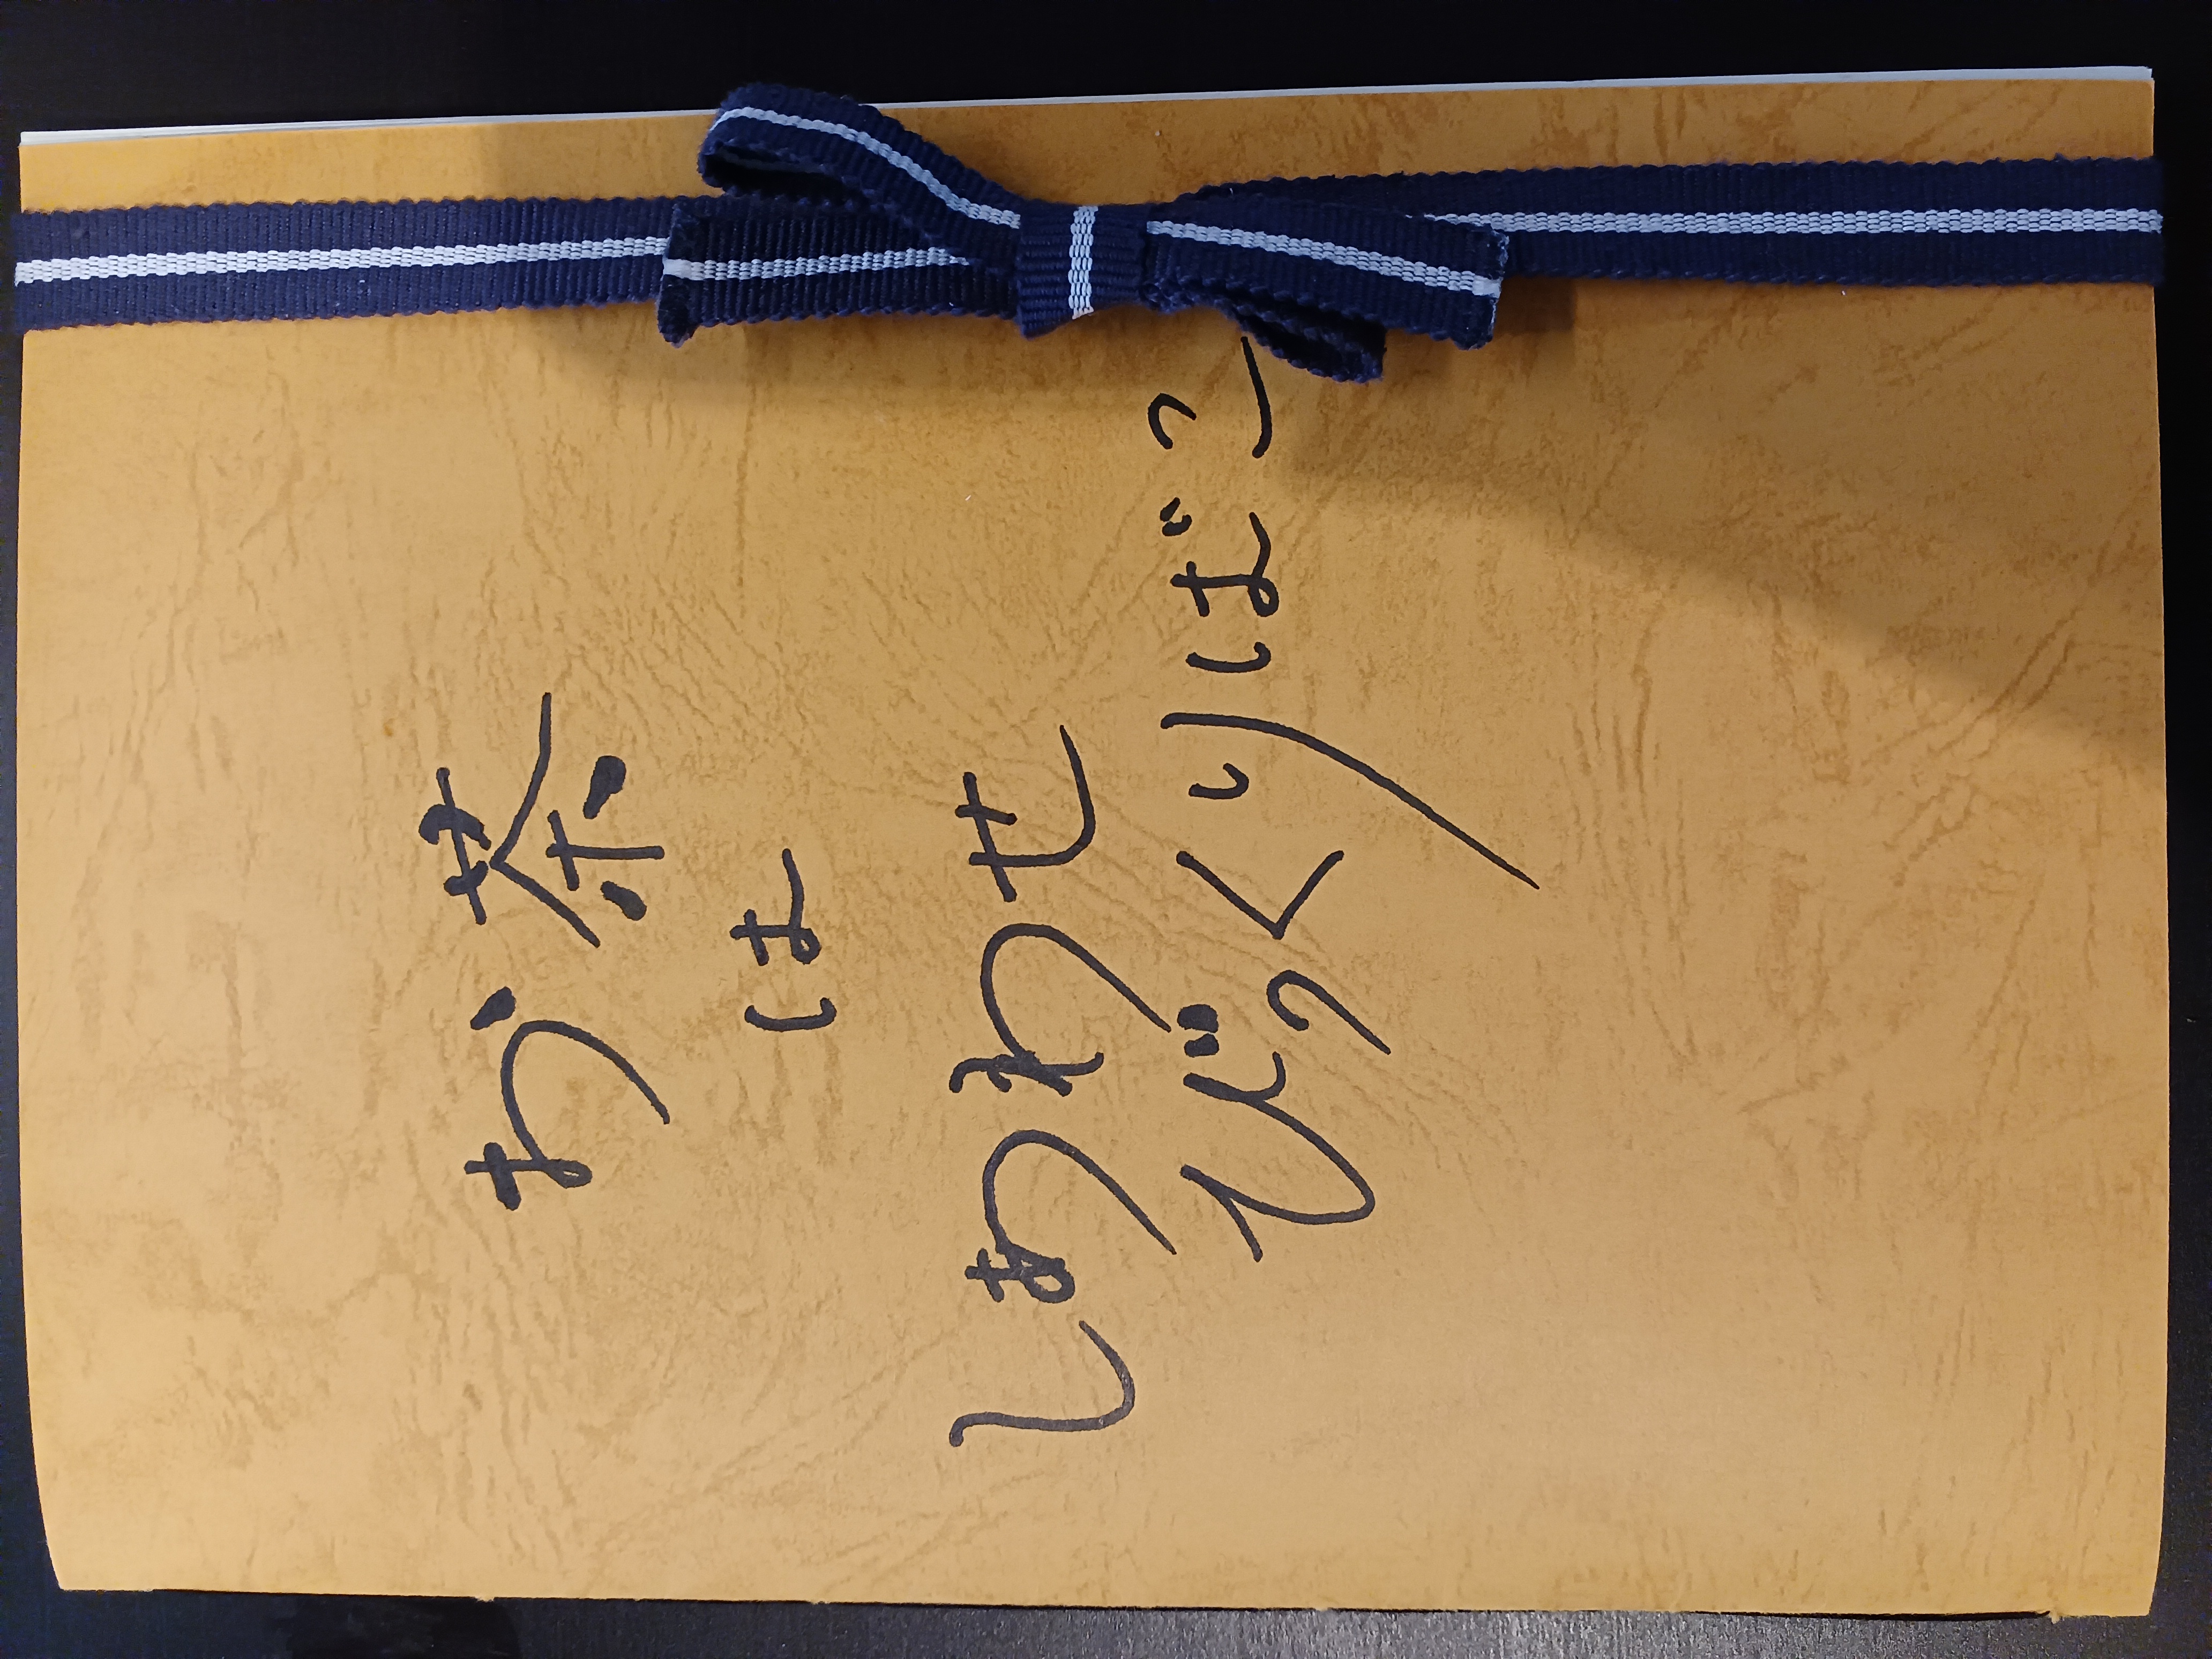 お茶
は
しあわせ
びっくりばこ